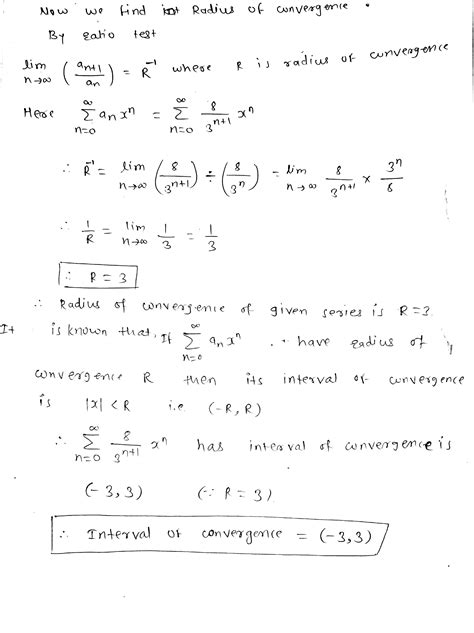 Now we find Radius of convergence.
By ratio test
lim n→∞ (aₙ₊₁/aₙ) = R⁻¹ where R is radius of convergence
Here ∑ₙ₌₀^∞ aₙxⁿ = ∑ₙ₌₀^∞ 8/3ⁿ⁺¹ xⁿ
∴ R⁻¹ = lim n→∞ (8/3ⁿ⁺¹) ÷ (8/3ⁿ) = lim n→∞ 8/3ⁿ⁺¹ × 3ⁿ/8
∴ 1/R = lim n→∞ 1/3 = 1/3
∴ R = 3
∴ Radius of convergence of given series is R = 3
It is known that, If ∑ₙ₌₀^∞ aₙxⁿ have radius of
convergence R then its interval of convergence
is |x| < R i.e. (-R, R)
∴ ∑ₙ₌₀^∞ 8/3ⁿ⁺¹ xⁿ has interval of convergence is
(-3, 3) (∵ R = 3)
∴ Interval of convergence = (-3, 3)